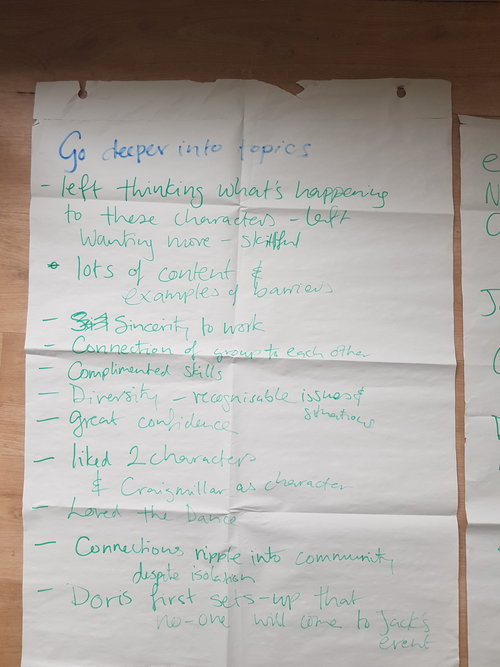 Go deeper into topics
- left thinking what's happening
to these characters - left
wanting more - skillful
• lots of content &
examples of barriers
- Sincerity to work
- Connection of group to each other
- Complimented skills
- Diversity - recognisable issues &
situations
- great confidence
- liked 2 characters
& Craigmillar as character
- Loved the Dance
- Connections ripple into community
despite isolation
- Doris first sets-up that
no-one will come to Jack's
event
e
N
C
J